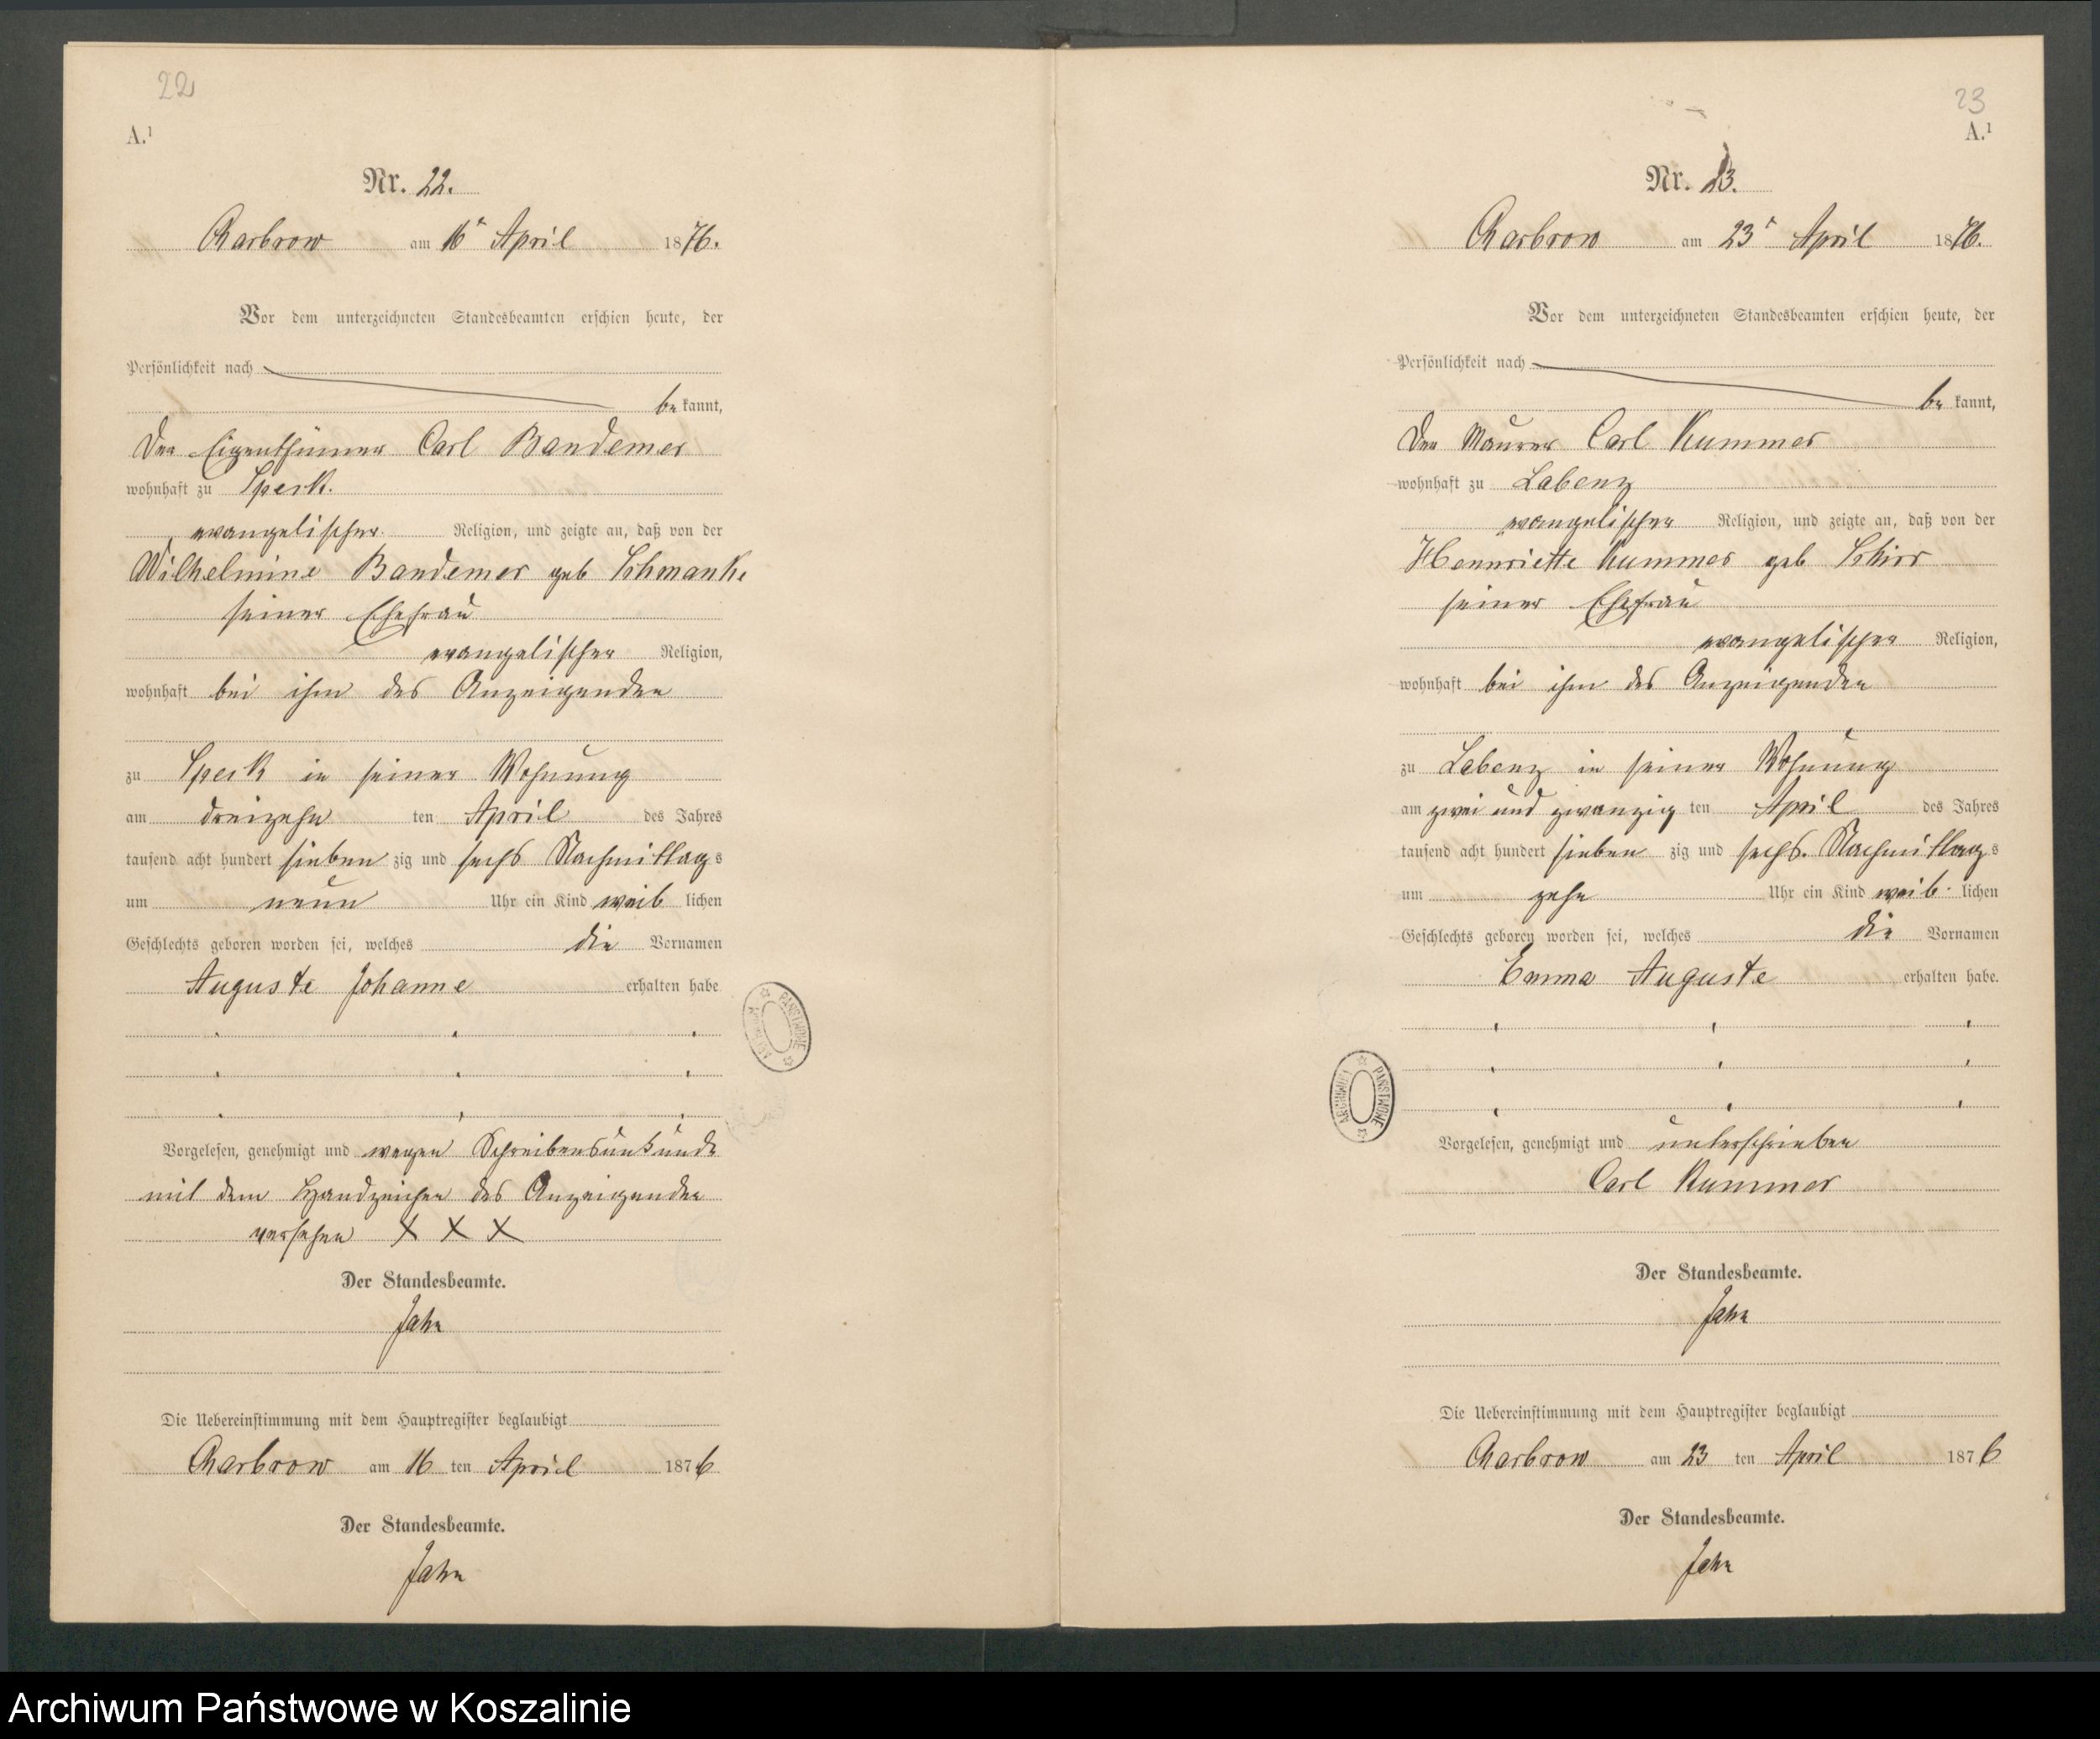 22
A.¹
Nr. 22.
Charbrow am 16ᵗ April 1876.
Vor dem unterzeichneten Standesbeamten erschien heute, der
Persönlichkeit nach
be kannt,
Der Eigenthümer Carl Bandemer
wohnhaft zu Speck.
evangelischer Religion, und zeigte an, daß von der
Wilhelmine Bandemer geb Schmanke
seiner Ehefrau
evangelischer Religion,
wohnhaft bei ihm des Anzeigenden
zu Speck in seiner Wohnung
am dreizehn ten April des Jahres
tausend acht hundert sieben zig und sechs Nachmittags
um neun Uhr ein Kind weib lichen
Geschlechts geboren worden sei, welches die Vornamen
Auguste Johanne erhalten habe
Vorgelesen, genehmigt und wegen Schreibensunkunde
mit dem Handzeichen des Anzeigenden
versehen X X X
Der Standesbeamte.
Jahn
Die Uebereinstimmung mit dem Hauptregister beglaubigt
Charbrow am 16 ten April 1876
Der Standesbeamte.
Jahn
ARCHIWUM PAŃSTWOWE
23
A.¹
Nr. 23.
Charbrow am 23ᵗ April 1876.
Vor dem unterzeichneten Standesbeamten erschien heute, der
Persönlichkeit nach
be kannt,
Der Maurer Carl Kummer
wohnhaft zu Labenz
evangelischer Religion, und zeigte an, daß von der
Hennriette Kummer geb Schirr
seiner Ehefrau
evangelischer Religion,
wohnhaft bei ihm des Anzeigenden
zu Labenz in seiner Wohnung
am zwei und zwanzig ten April des Jahres
tausend acht hundert sieben zig und sechs. Nachmittags
um zehn Uhr ein Kind weib lichen
Geschlechts geboren worden sei, welches die Vornamen
Emma Auguste erhalten habe.
Vorgelesen, genehmigt und unterschrieben
Carl Kummer
Der Standesbeamte.
Jahn
Die Uebereinstimmung mit dem Hauptregister beglaubigt
Charbrow am 23 ten April 1876
Der Standesbeamte.
Jahn
ARCHIWUM PAŃSTWOWE
Archiwum Państwowe w Koszalinie